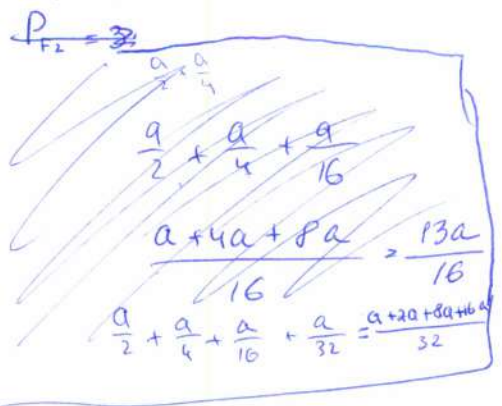 P_F2 = 32
a/2 + a/4
a/2 + a/4 + a/16
(a + 4a + 8a)/16 = 13a/16
a/2 + a/4 + a/16 + a/32 = (a + 2a + 8a + 16a)/32